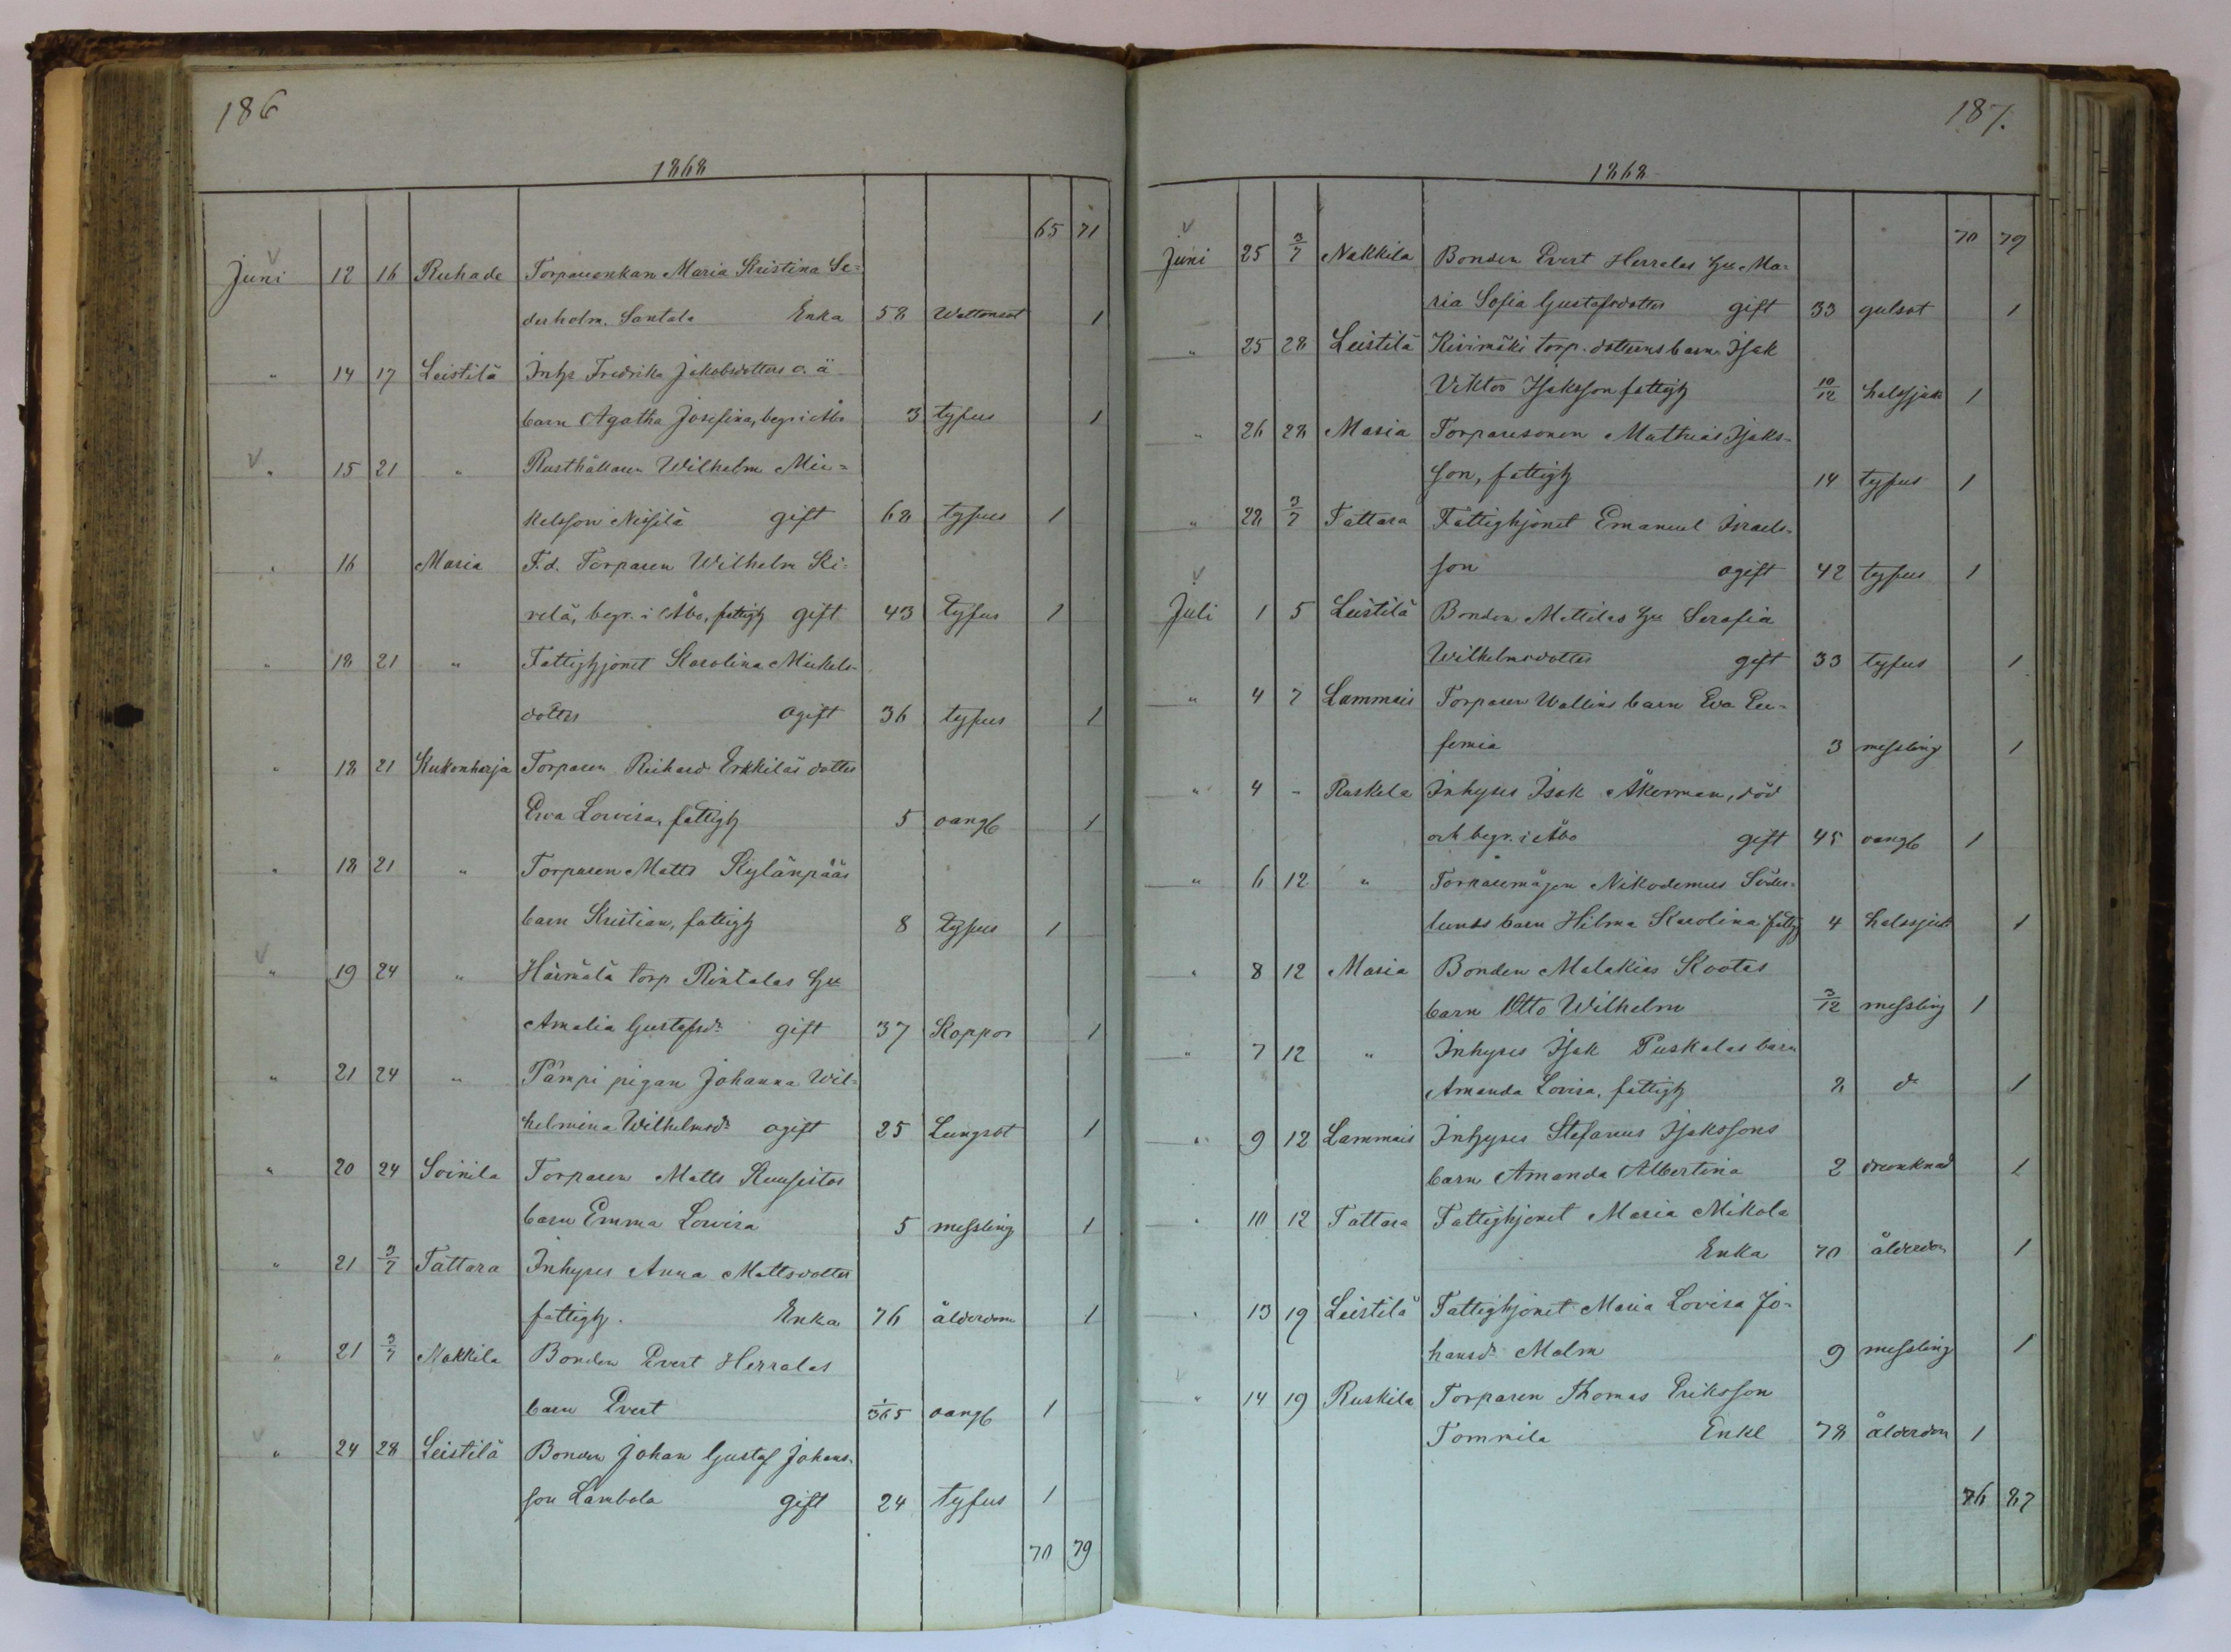 186
1868
65 71
Juni 12 16 Ruhade Torpareenkan Maria Kristina Se=
derholm. Santala Enka 58 Wattensot 1
" 14 17 Leistilä Inhs Fredrika Jakobsdotters o. ä
barn Agatha Josefina, begr i Åbo 3 typus 1
" 15 21 " Rusthållaren Wilhelm Mic=
kelsson Nissilä gift 68 typus 1
" 16 Masia F.d. Torparen Wilhelm Ki=
relä, begr. i Åbo, fattigh gift 43 tyfus 1
" 18 21 " Fattighjonet Karolina Mickels=
dotter ogift 36 typus 1
" 18 21 Kukonharja Torparen Richard Erkkiläs dotter
Ewa Lowisa, fattigh 5 oangf 1
" 18 21 " Torparen Matts Kylänpääs
barn Kristian, fattigh 8 typus 1
" 19 24 " Härmälä torp Rintalas hu
Amalia Gustafsdr gift 37 Koppor 1
" 21 24 " Pämpi pigan Johanna Wil=
helmina Wilhelmsdr ogift 25 Lungsot 1
" 20 24 Soinila Torparen Matts Kuusistos
barn Emma Lowisa 5 messling 1
" 21 3/7 Tattara Inhyses Anna Mattsdotter
fattigh. Enka 76 ålderdom 1
" 21 3/7 Nakkila Bonden Evert Herralas
barn Evert 1/365 oangf 1
" 24 28 Leistilä Bonden Johan Gustaf Johans=
son Lambola gift 24 tyfus 1
70 79
187.
1868
70 79
Juni 25 3/7 Nakkila Bonden Evert Herralas hu Ma=
ria Sofia Gustafsdotter gift 33 gulsot 1
" 25 28 Leistilä Kivimäki torp. dotterns barn Isak
Viktor Isaksson fattigh 10/12 halssjuk 1
" 26 28 Masia Torparesonen Mathias Isaks=
son, fattigh 14 typus 1
" 28 3/7 Tattara Fattighjonet Emanuel Israels=
son ogift 42 typus 1
Juli 1 5 Leistilä Bonden Mattilas hu Serafia
Wilhelmsdotter gift 33 tyfus 1
" 4 7 Lammais Torparen Wallins barn Eva Eu=
femia 3 messling 1
" 4 - Ruskila Inhyses Isak Åkerman, död
och begr. i Åbo gift 45 oangf 1
" 6 12 " Torparemågen Nikodemus Söder=
lunds barn Hilma Karolina fattig 4 halssjuk 1
" 8 12 Masia Bonden Malakias Kootas
barn Otto Wilhelm 3/12 messling 1
" 7 12 " Inhyses Isak Puskalas barn
Amanda Lovisa, fattigh 2 do 1
" 9 12 Lammais Inhyses Stefanus Isakssons
barn Amanda Albertina 2 drunknad 1
" 10 12 Tattara Fattighjonet Maria Mikola
Enka 70 ålderdom 1
" 13 19 Leistilä Fattighjonet Maria Lovisa Jo=
hansdr Malm 9 messling 1
" 14 19 Ruskila Torparen Thomas Eriksson
Tommila Enkl 78 ålderdom 1
76 87